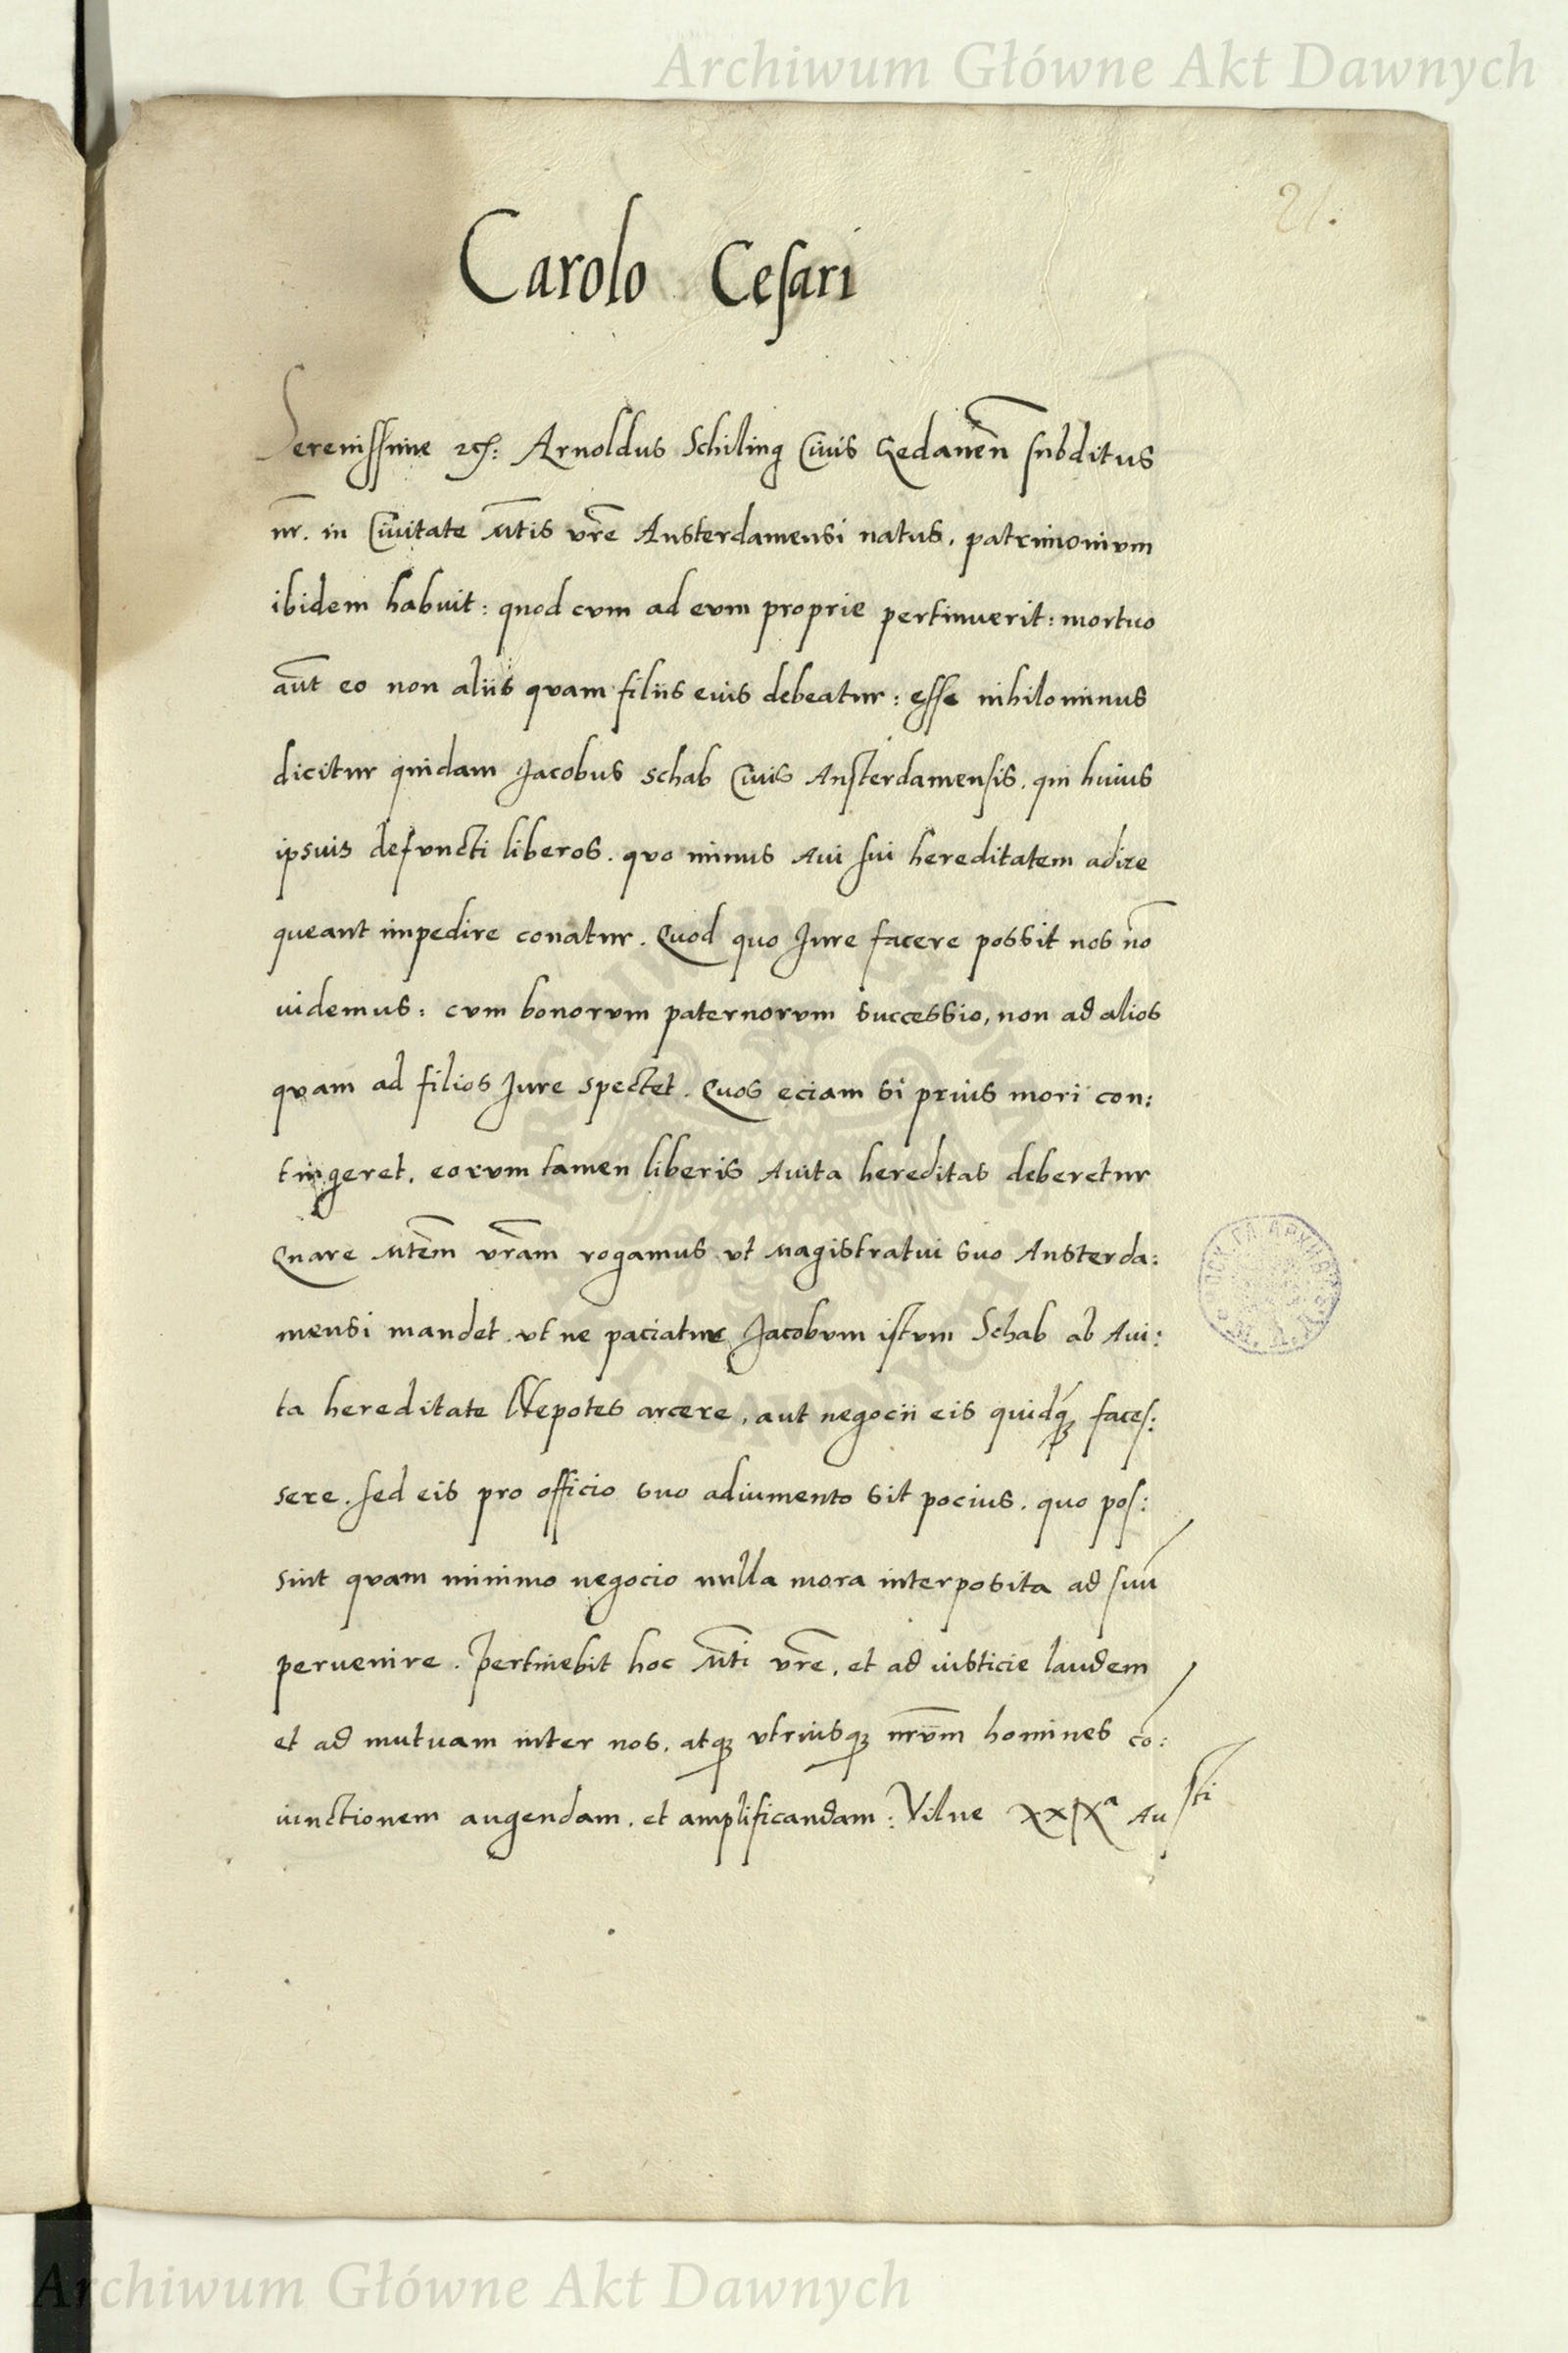 Archiwum Główne Akt Dawnych
21.
Carolo Cesari
Serenissime etc: Arnoldus Schiling Ciuis Gedaneñ subditus
nr̄. in Ciuitate Mt̄is vrē Ansterdamensi natus, patrimonivm
ibidem habuit: quod cvm ad evm proprie pertinuerit: mortuo
aūt eo non aliis qvam filiis eius debeatur: esse nihilominus
dicitur quidam Jacobus Schab Ciuis Ansterdamensis. qui huius
ipsius defvncti liberos. qvo minus Aui sui hereditatem adire
queant impedire conatur. Quod quo Jure facere possit nos nō
uidemus: cvm bonorvm paternorvm successio, non ad alios
qvam ad filios Jure spectet. Quos eciam si prius mori con:
tingeret, eorvm tamen liberis Auita hereditas deberetur
Quare Mtēm vrām rogamus vt Magistratui suo Ansterda:
mensi mandet vt ne paciatur Jacobvm istvm Schab ab Aui:
ta hereditate Nepotes arcere, aut negocii eis quidq̃ faces:
sere. sed eis pro officio suo adiumento sit pocius. quo pos:
sint qvam minimo negocio nulla mora interposita ad suū
peruenire. Pertinebit hoc Mt̄i vrē, et ad iusticie laudem
et ad mutvam inter nos, atq; vtriusq; nrv̄m homines cō:
iunctionem augendam, et amplificandam: Vilne XXIXa Au
sti
Archiwum Główne Akt Dawnych